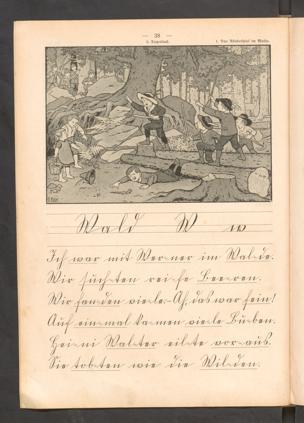 — 38 —
1. Das Räuberspiel im Walde.
Wald W w
Ich war mit Wer-ner im Wal-de.
Wir such-ten rei-fe Bee-ren.
Wir fan-den vie-le.- Ah, das war fein!
Auf ein-mal ka-men vie-le Bu-ben.
Hei-ni Wal-ter eil-te vor-aus.
Sie tob-ten wie die Wil-den.